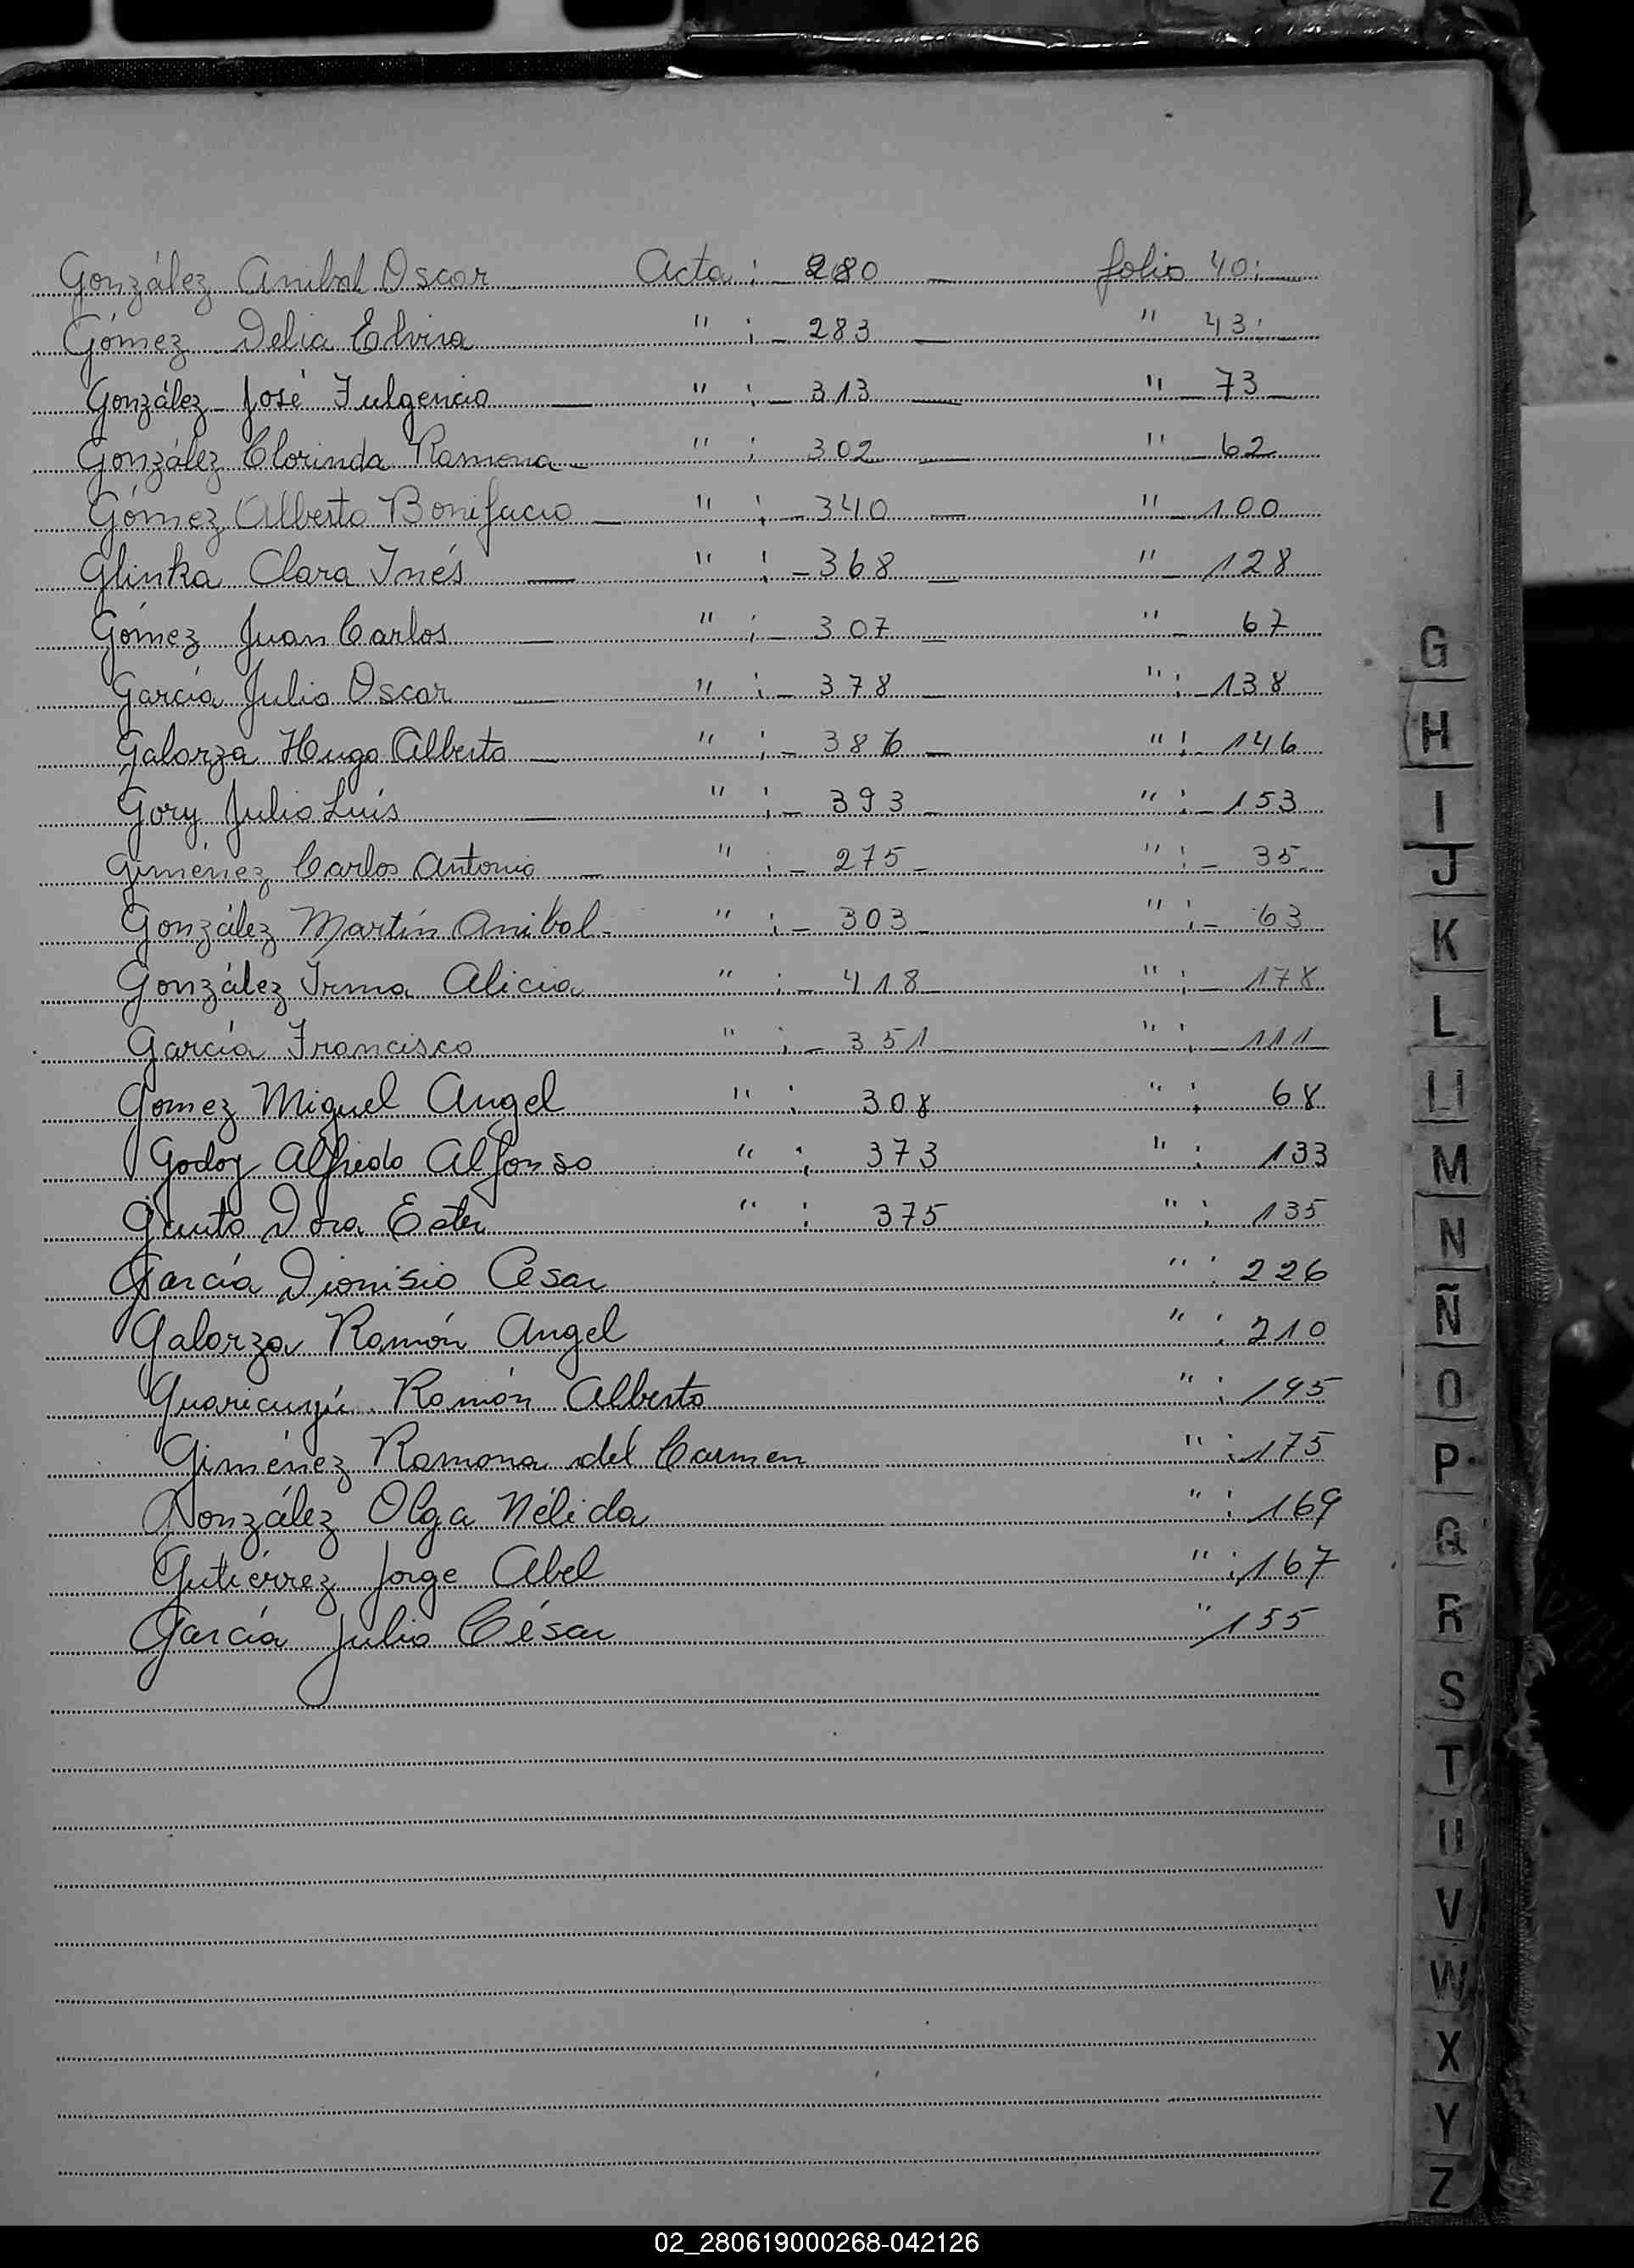 González Anibal Oscar Acta : - 280 — folio 40 :
Gómez Delia Elvira " : - 283 — " 43 :
González José Fulgencio — " : - 313 — " - 73 -
González Clorinda Ramona - " : 302 — " - 62
Gómez Alberto Bonifacio — " : - 340 — " - 100
Glinka Clara Inés — " : - 368 — " - 128
Gómez Juan Carlos — " : - 307 — " - 67
García Julio Oscar — " : - 378 — " : - 138
Galarza Hugo Alberto — " : - 386 — " : - 146
Gory Julio Luis — " : - 393 - " : - 153
Giménez Carlos Antonio - " : - 275 - " : - 35 -
González Martín Anibal - " : - 303 - " : - 63
González Irma Alicia " : - 418 - " : - 178
García Francisco " : - 351 - " : - 111
Gomez Miguel Angel " : 308 " : 68
Godoy Alfredo Alfonso " : 373 " : 133
Dora Ester " : 375 " : 135
García Dionisio Cesar " : 226
Galarza Ramón Angel " : 210
Guaricuyú Ramón Alberto " : 195
Giménez Ramona del Carmen " : 175
González Olga Nélida " : 169
Gutiérrez Jorge Abel " : 167
García Julio César " 155
G
H
I
J
K
L
Ll
M
N
Ñ
O
P
Q
R
S
T
U
V
W
X
Y
Z
02_280619000268-042126